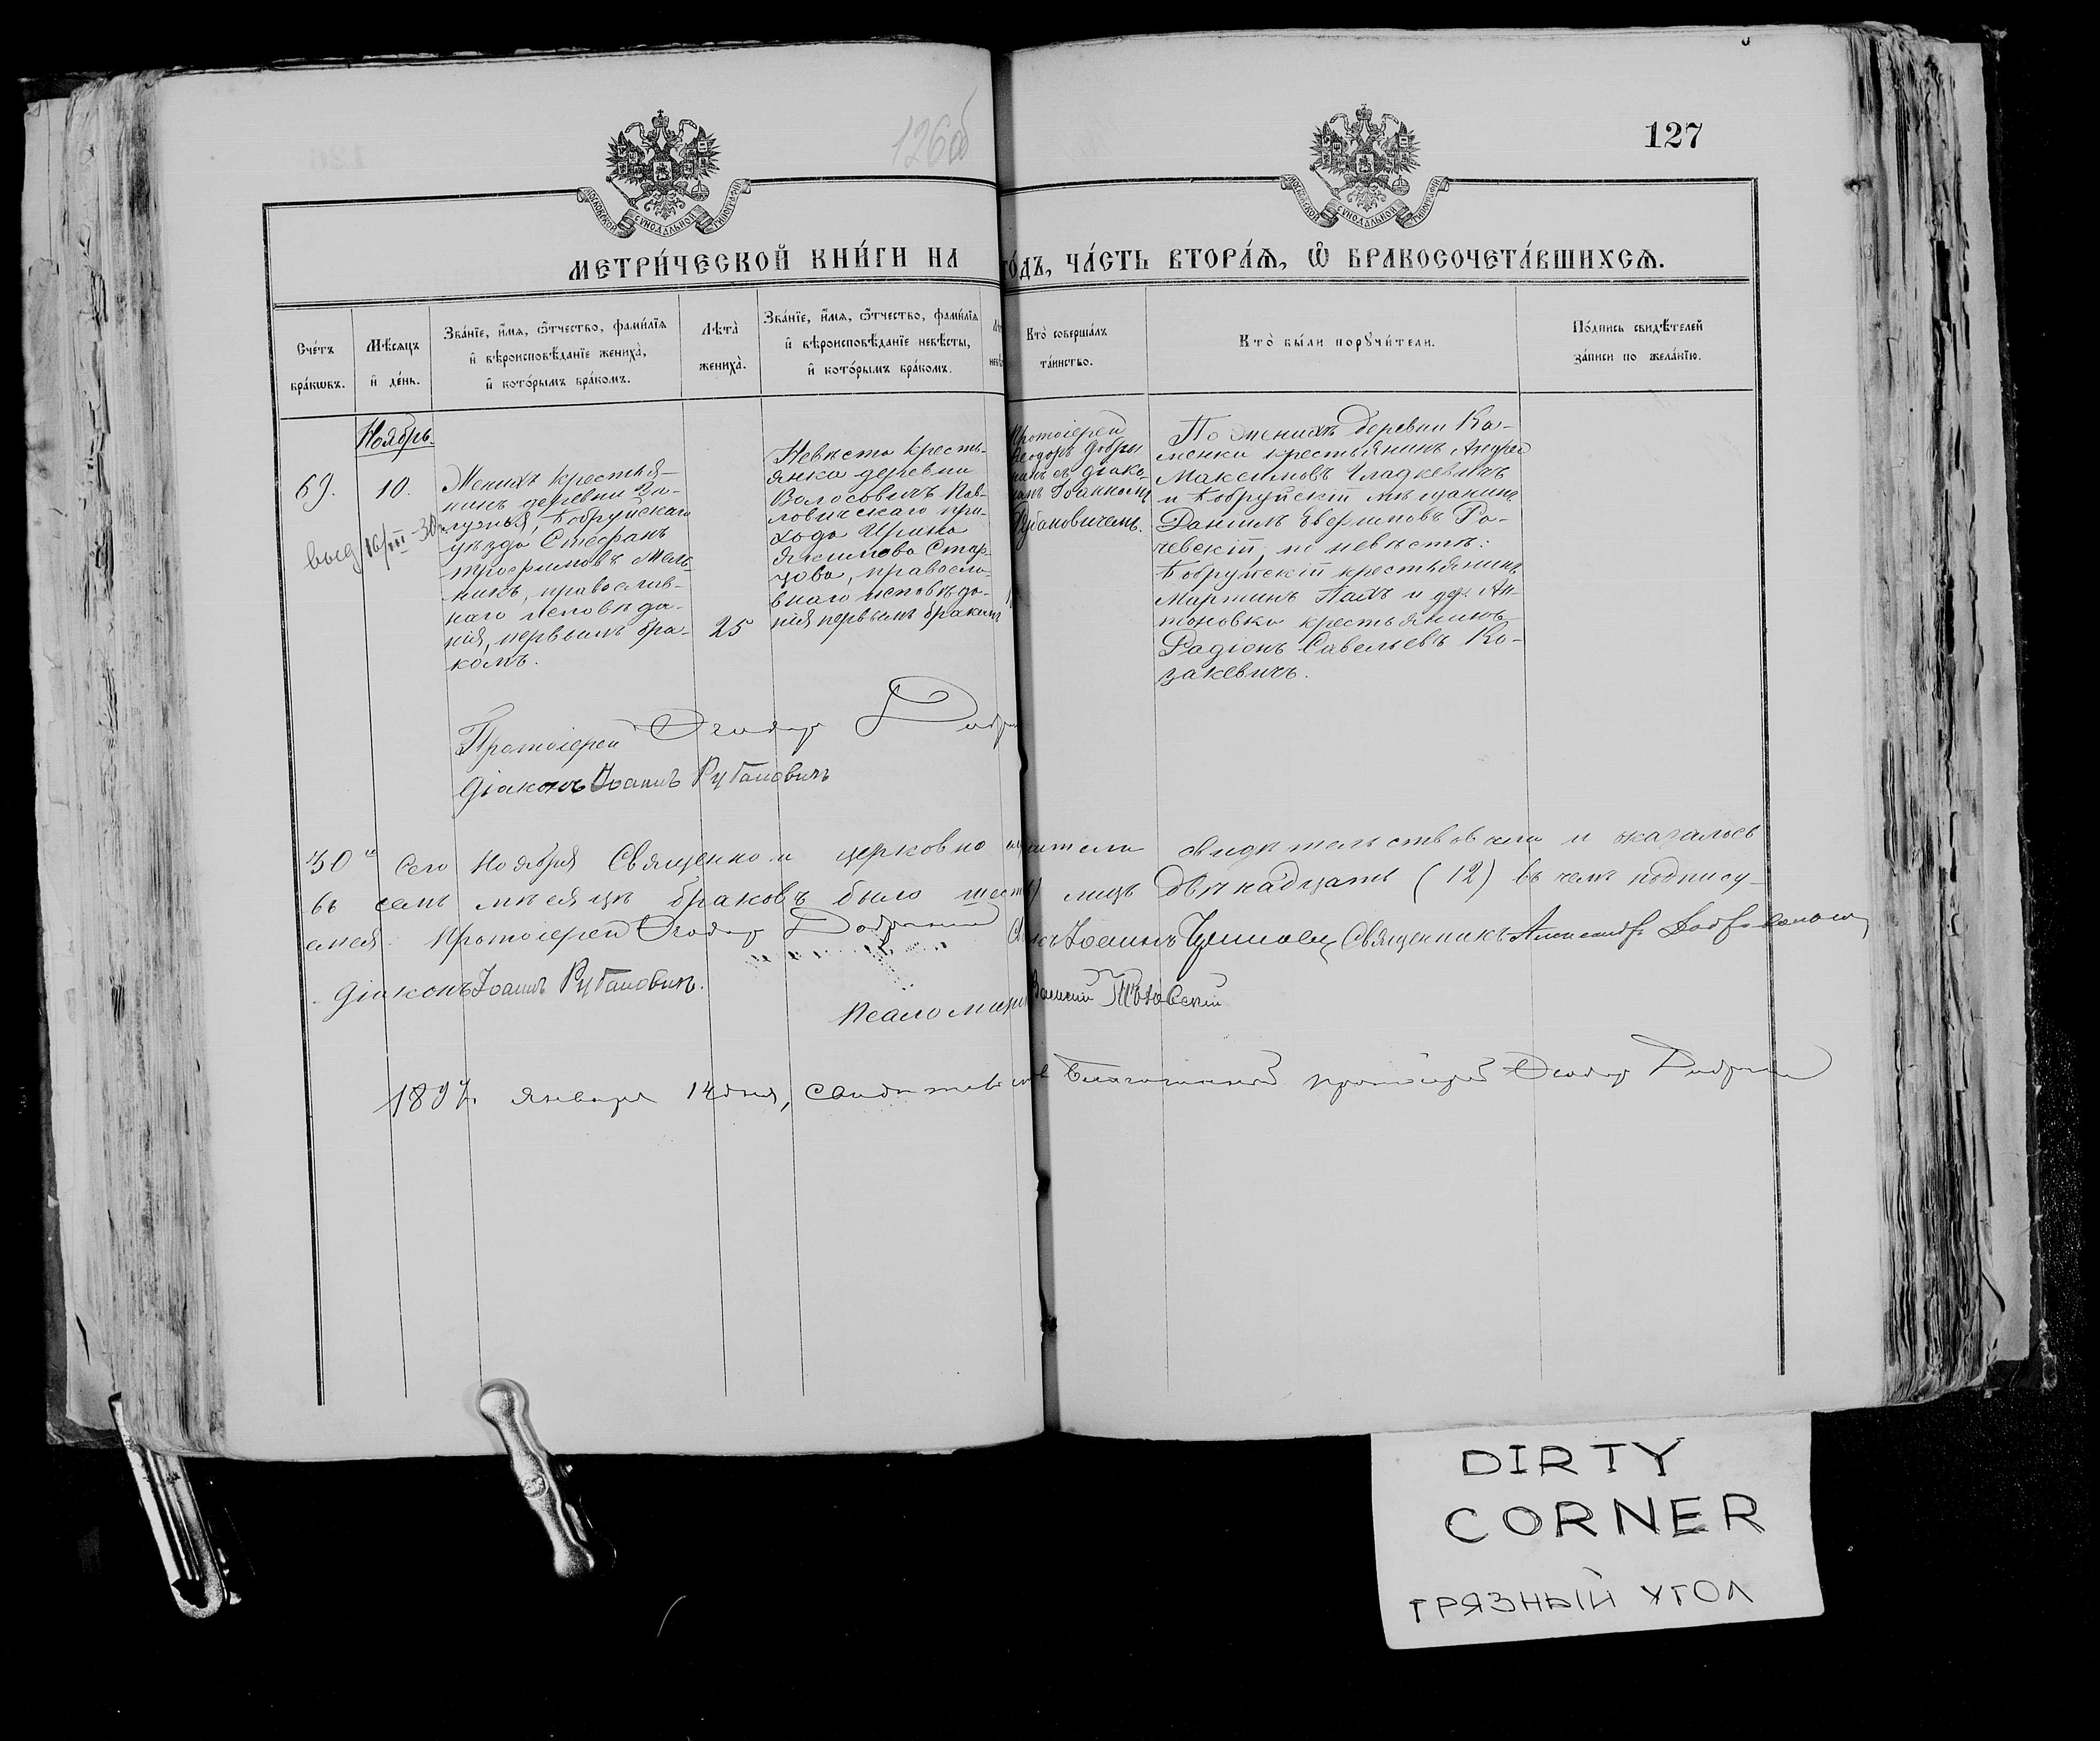 126об
127
МОСКОВСКОЙ СѴНОДАЛЬНОЙ ТИПОГРАФІИ
МОСКОВСКОЙ СѴНОДАЛЬНОЙ ТИПОГРАФІИ
МЕТРИ́ЧЕСКОЙ КНИ́ГИ НА
ГО́ДЪ, ЧА́СТЬ ВТОРА́Я, Ѽ БРАКОСОЧЕТА́ВШИХСЯ.
Счетъ
браковъ.
Мѣсяцъ
и день.
Званіе, имя, ѿчество, фамилія
и вѣроисповѣданіе жениха,
и которымъ бракомъ.
Лѣта
жениха.
Званіе, имя, ѿчество, фамилія
и вѣроисповѣданіе невѣсты,
и которымъ бракомъ.
Кто совершалъ
таинство.
Кто были поручители.
Подпись свидѣтелей
записи по желанію.
Ноябрь.
69.
10.
выд 16/III-30г.
Женихъ крестья-
нинъ деревни За-
лузья, Бобруйскаго
уѣзда Стефанъ
Трофимовъ Мель-
никъ, православ-
наго исповѣда-
нія, первымъ бра-
комъ.
25
Невѣста кресть-
янка деревни
Волосовичъ Пав-
ловичскаго при-
хода Ирина
Якимова Стар-
цова, правосла-
внаго исповѣда-
нія первымъ бракомъ
Протоіерей
Ѳеодоръ Добры
нинъ съ діако-
номъ Іоанномъ
Рубановичемъ.
По женихѣ деревни Ка-
менки крестьянинъ Андрей
Максимовъ Гладкевичъ
и Бобруйскій мѣщанинъ
Даніилъ
чевскій, по невѣстѣ:
Бобруйскій крестьянинъ
Мартинъ Пахъ и дер. Ан-
тоновки крестьянинъ
Радіонъ Савельевъ Ко-
закевичъ.
Протоіерей Ѳеодоръ
Діаконъ Іоаннъ Рубановичъ
30го сего Ноября Священно и церковно свидѣтельствовали и оказалось
въ семъ мѣсяцѣ браковъ было шесть лицъ двѣнадцать (12) въ чемъ подпису-
емся. Протоіерей Ѳеодоръ Добрынинъ Іоаннъ Священникъ Александръ
Діаконъ Іоаннъ Рубановичъ.
Псаломщикъ Василій
1897 Января 14 дня, Благочинный протоіерей Ѳеодоръ Добрынинъ
DIRTY
CORNER
ГРЯЗНЫЙ УГОЛ